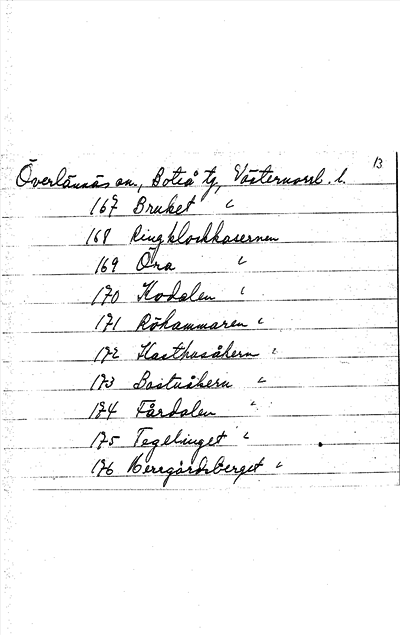 13
Överlännäs sn., Boteå tg, Västernorrl. l.
167 Bruket "
168 Ringklockkasernen
169 Öra "
170 Kodalen "
171 Röhammaren "
172 Hästhusåkern "
173 Bastuåkern "
174 Fårdalen "
175 Tegelruget "
176 Herrgårdsberget "